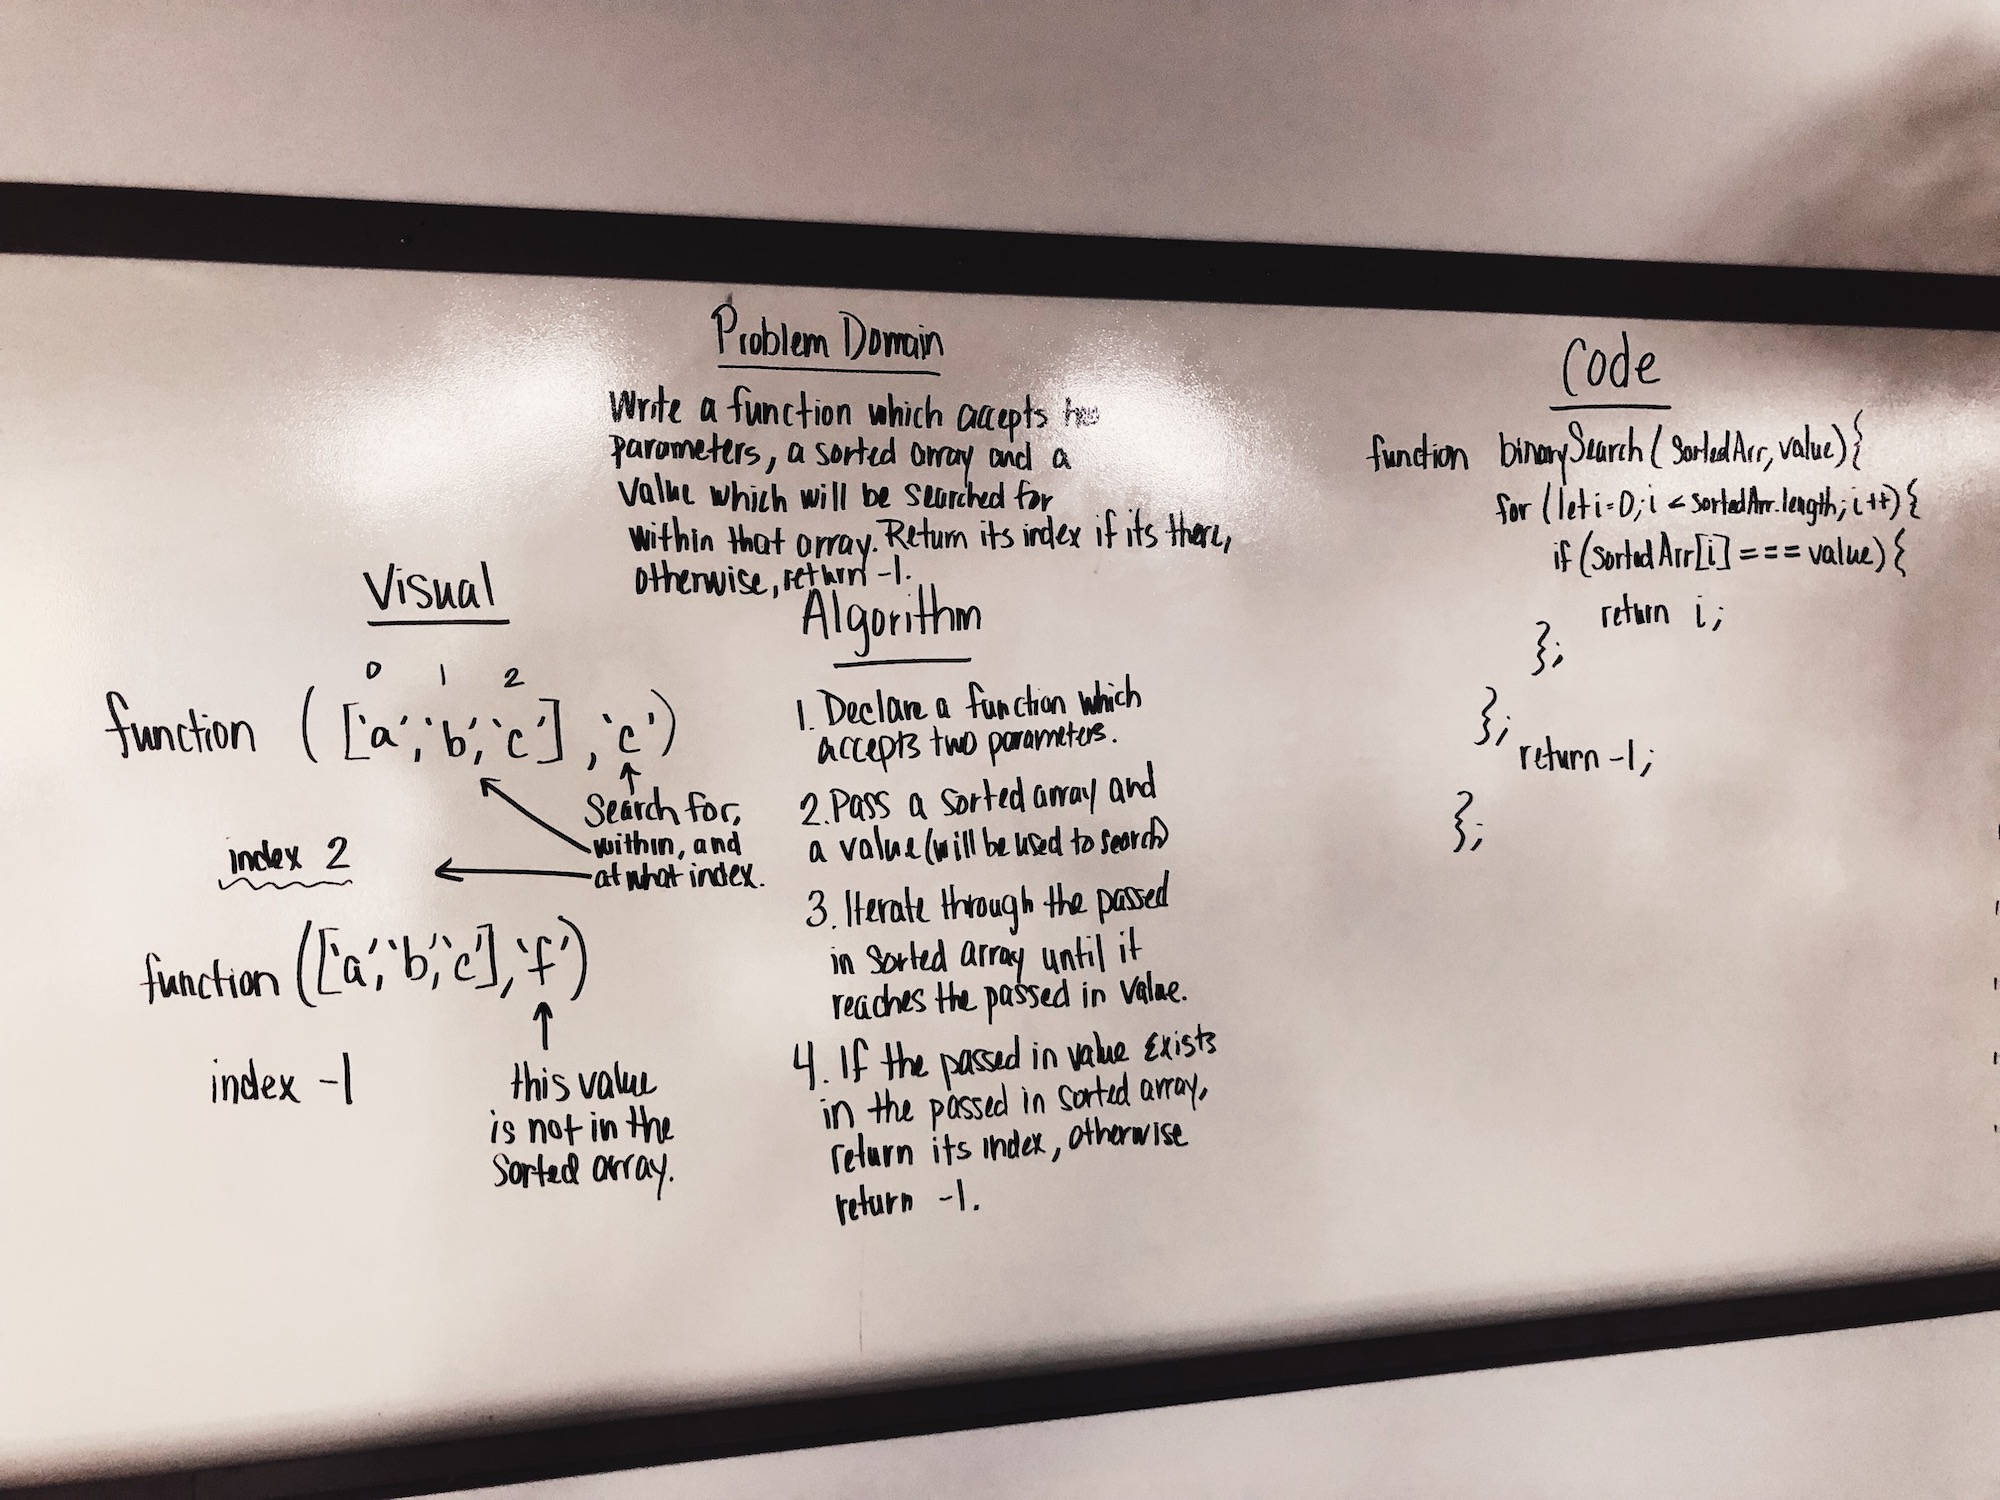 Problem Domain
Write a function which accepts two
parameters, a sorted array and a
value which will be searched for
within that array. Return its index if its there,
otherwise, return -1.
Visual
0 1 2
function (['a','b','c'],'c')
Search for,
within, and
at what index.
index 2
function (['a','b','c'],'f')
index -1
this value
is not in the
sorted array.
Algorithm
1. Declare a function which
accepts two parameters.
2. Pass a sorted array and
a value (will be used to search)
3. Iterate through the passed
in sorted array until it
reaches the passed in value.
4. If the passed in value exists
in the passed in sorted array,
return its index, otherwise
return -1.
Code
function binarySearch (sortedArr, value) {
for (let i=0; i < sortedArr.length; i++) {
if (sortedArr[i] === value) {
return i;
};
};
return -1;
};